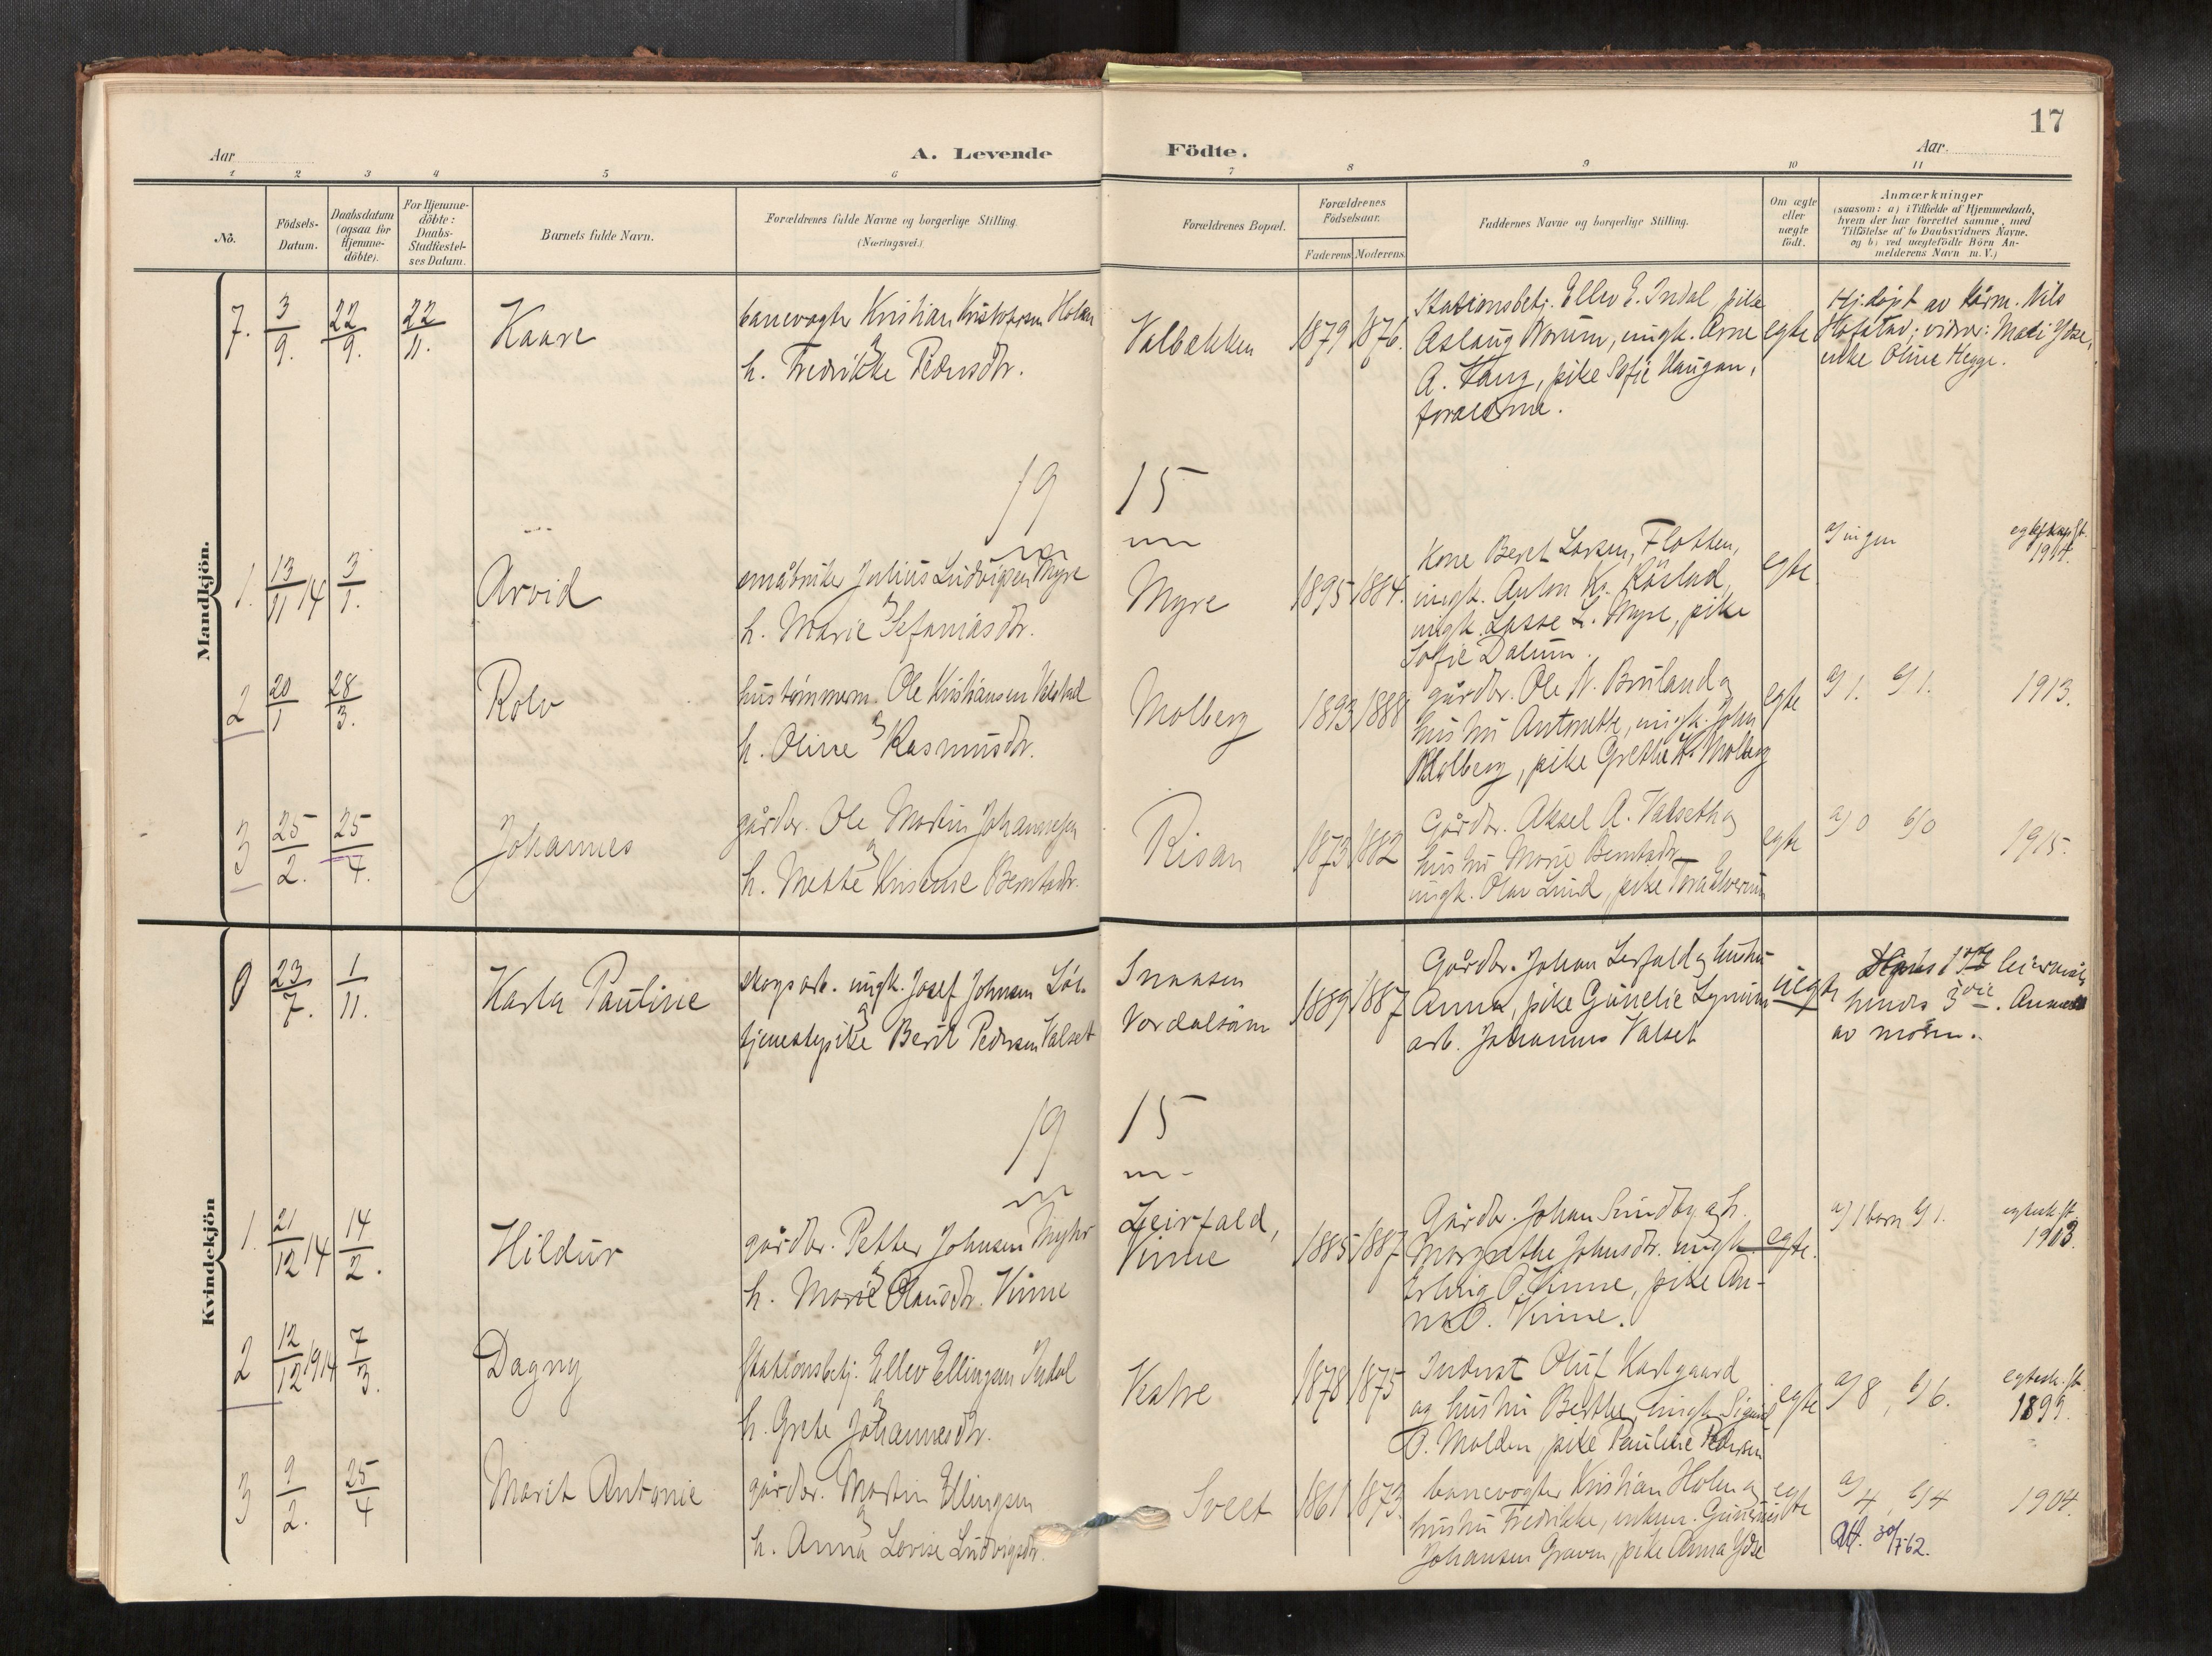 17
Aar
A. Levende Födte.
Aar.
1 2 3 4 5 6 7 8 9 10 11
No.
Födsels-
Datum.
Daabsdatum
(ogsaa for
Hjemme-
döbte).
For Hjemme-
döbte:
Daabs-
Stadfæstel-
ses Datum.
Barnets fulde Navn.
Forældrenes fulde Navne og borgerlige Stilling.
(Næringsvei.)
Forældrenes Bopæl.
Forældrenes
Födselsaar.
Faderens. Moderens.
Faddernes Navne og borgerlige Stilling.
Om ægte
eller
uægte
födt.
Anmærkninger
(saasom: a) i Tilfælde af Hjemmedaab,
hvem der har forrettet samme, med
Tilföielse af to Daabsvidners Navne.
og b) ved uægtefödte Börn An-
melderens Navn m. V.)
Mandkjön.
7. 3/9. 22/9. 22/11. Kaare
banevogter Kristian Kristofersen Holan
og
h. Fredrikke Pedersdtr.
Valbækken 1879 1876.
Stationsbetj. Ellev E. Indal, pike
Aslaug Norum, ungk. Arne
A. Haug, pike Sofie Haugan,
forældrene.
egte
Hj.døpt av Nils
Hofstad; vidner: Ydse,
enke Oline Hegge.
19 15
1. 13/11 14 3/1. Arvid
småbruker Julius Ludvigsen Myre
og
h. Marie Stefaniasdtr.
Myre 1895 1884.
Kone Beret Larsen, Flotten,
ungk. Anton Kr. Röstad,
ungk. Lasse L. Myre, pike
Sofie Dalum.
egte
a) ingen
egteskap st.
1914.
2 20/1 28/3. Rolv
hustömmerm. Ole Kristiansen
og
h. Oline Rasmusdtr.
Molberg 1893 1888
gårdbr. Ole N. Bruland og
hustru Antonette, ungk. John
Molberg, pike Grethe K. Molberg
egte
a) 1. b) 1. 1913.
3 25/2. 25/4. Johannes
gårdbr. Ole Martin Johannesen
og
h. Mette Kristine Berntsdtr.
Risan 1873 1882
Gårdbr. Aksel A. Valseth og
hustru Marie Berntsdtr.
ungk. Olav Lund, pike Tora
egte
a) 0 b) 0 1915.
Kvindekjön
23/7. 1/11. Karla Pauline
skogsarb. ungk. Josef Johnsen
og
tjenestepike Berit Pedersen Valset
Snaasen
Vordalsøren 1889 1887
Gårdbr. Johan Leirfald og hustru
Anna, pike Gunelie Lynum
arb. Johannes Valset
uegte
leiermål,
hendes 3die.
av moren.
19 15
1. 21/12 14 14/2. Hildur
gårdbr. Petter Johnsen Myhr
og
h. Marie Olausdtr. Vinne
Leirfald,
Vinne 1885 1887
Gårdbr. Johan Sundby og h.
Margrethe Johnsdtr. ungk.
Erling O. Vinne, pike An-
na O. Vinne.
egte.
a) 1 barn b) 1.
egtesk. st.
1913.
2 12/12 1914 7/3. Dagny
Stationsbetj. Ellev Ellingsen Indal
og
h. Grete Johannesdtr.
1878 1875
Oluf Karlgaard
og hustru Berthe, ungk. Sigurd
O. Molden, pike Pauline Pedersen
egte
a) 8, b) 6.
egtesk. st.
1899.
3 9/2. 25/4 Marit Antonie
gårdbr. Martin Ellingsen
og
h. Anna Lovise Ludvigsdtr.
Sveet 1861 1873.
banevogter Kristian Holan og
hustru Fredrikke,
Johansen Graven, pike Anna Ydse
egte
a) 4, b) 4 1904.
Att. 30/7-62.